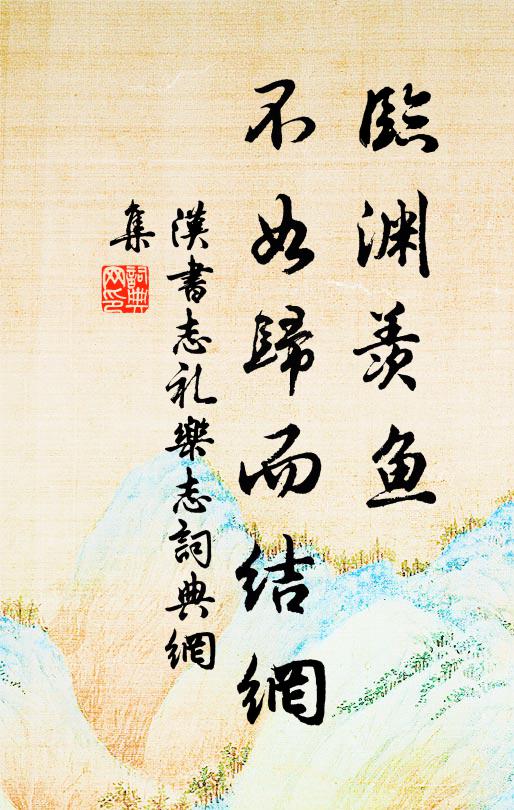 臨渊羨鱼
不如歸而结網
漢書志礼樂志詞典網
集
詞典网印